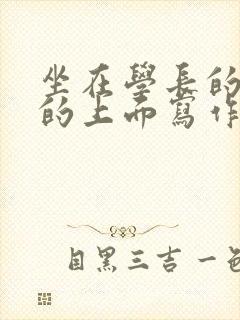 坐在學長的
的上而寫作
目黑三吉一